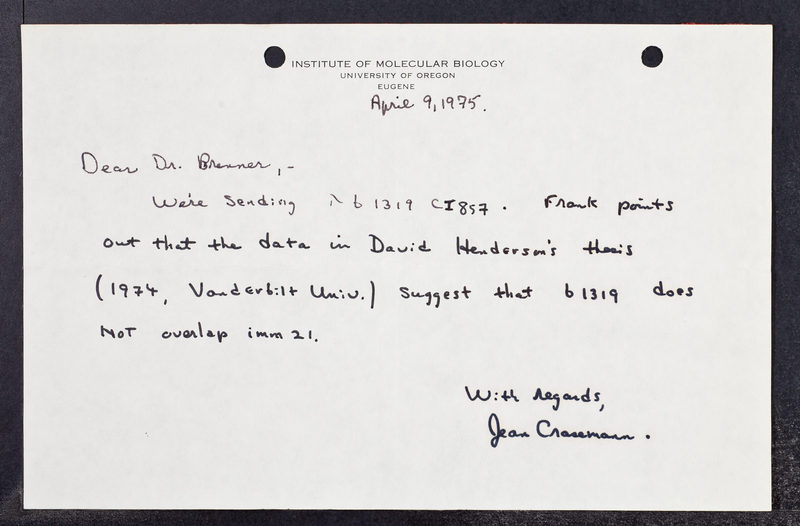 INSTITUTE OF MOLECULAR BIOLOGY
UNIVERSITY OF OREGON
EUGENE
April 9, 1975.
Dear Dr. Brenner, -
We're sending λ b 1319 cI857. Frank points
out that the data in David Henderson's thesis
(1974, Vanderbilt Univ.) suggest that b 1319 does
NOT overlap imm 21.
With regards,
Jean Crasemann.